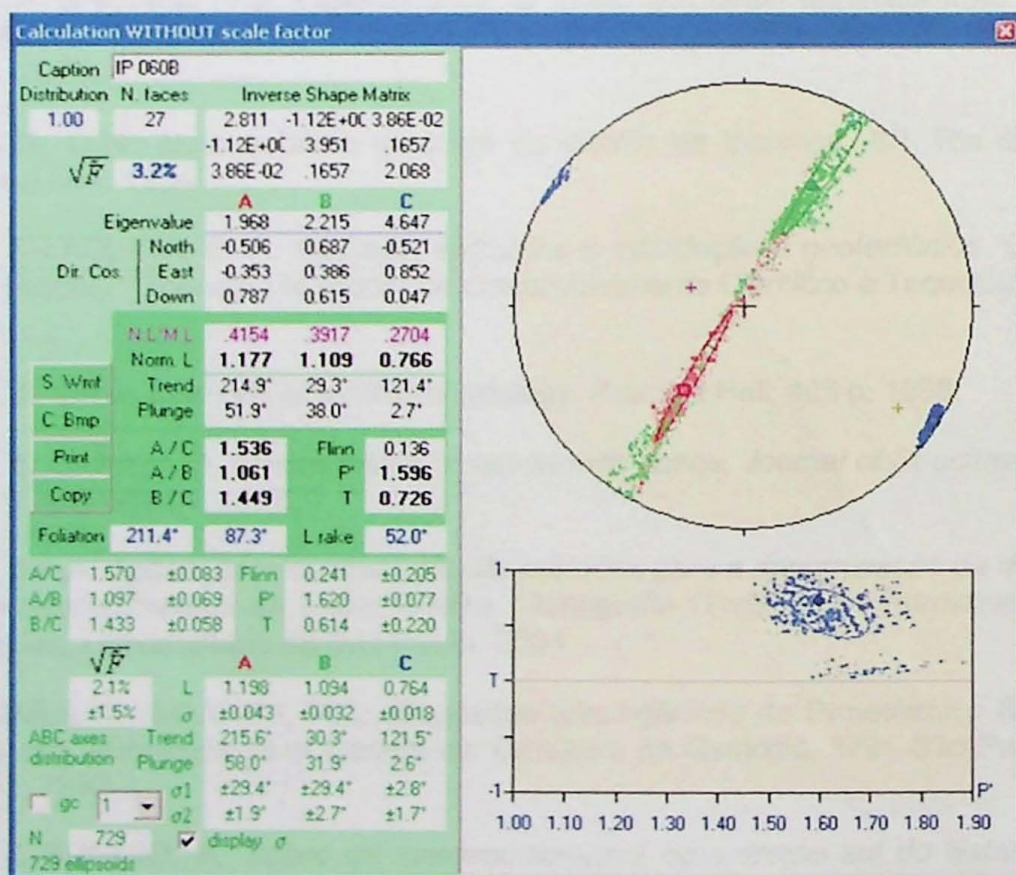 Calculation WITHOUT scale factor
Caption IP 060B
Distribution N. faces Inverse Shape Matrix
1.00 27 2.811 -1.12E+0C 3.86E-02
-1.12E+0C 3.951 .1657
√F 3.2% 3.86E-02 .1657 2.068
A B C
Eigenvalue 1.968 2.215 4.647
North -0.506 0.687 -0.521
Dir. Cos. East -0.353 0.386 0.852
Down 0.787 0.615 0.047
N L*M L .4154 .3917 .2704
Norm. L 1.177 1.109 0.766
S. Wmf Trend 214.9° 29.3° 121.4°
C. Bmp Plunge 51.9° 38.0° 2.7°
Print A / C 1.536 Flinn 0.136
A / B 1.061 P' 1.596
Copy B / C 1.449 T 0.726
Foliation 211.4° 87.3° L rake 52.0°
A/C 1.570 ±0.083 Flinn 0.241 ±0.205
A/B 1.097 ±0.069 P' 1.620 ±0.077
B/C 1.433 ±0.058 T 0.614 ±0.220
√F A B C
2.1% L 1.198 1.094 0.764
±1.5% σ ±0.043 ±0.032 ±0.018
ABC axes Trend 215.6° 30.3° 121.5°
distribution Plunge 58.0° 31.9° 2.6°
σ1 ±29.4° ±29.4° ±2.8°
gc 1 σ2 ±1.9° ±2.7° ±1.7°
N 729 display σ
729 ellipsoids
1
T
-1
P'
1.00 1.10 1.20 1.30 1.40 1.50 1.60 1.70 1.80 1.90